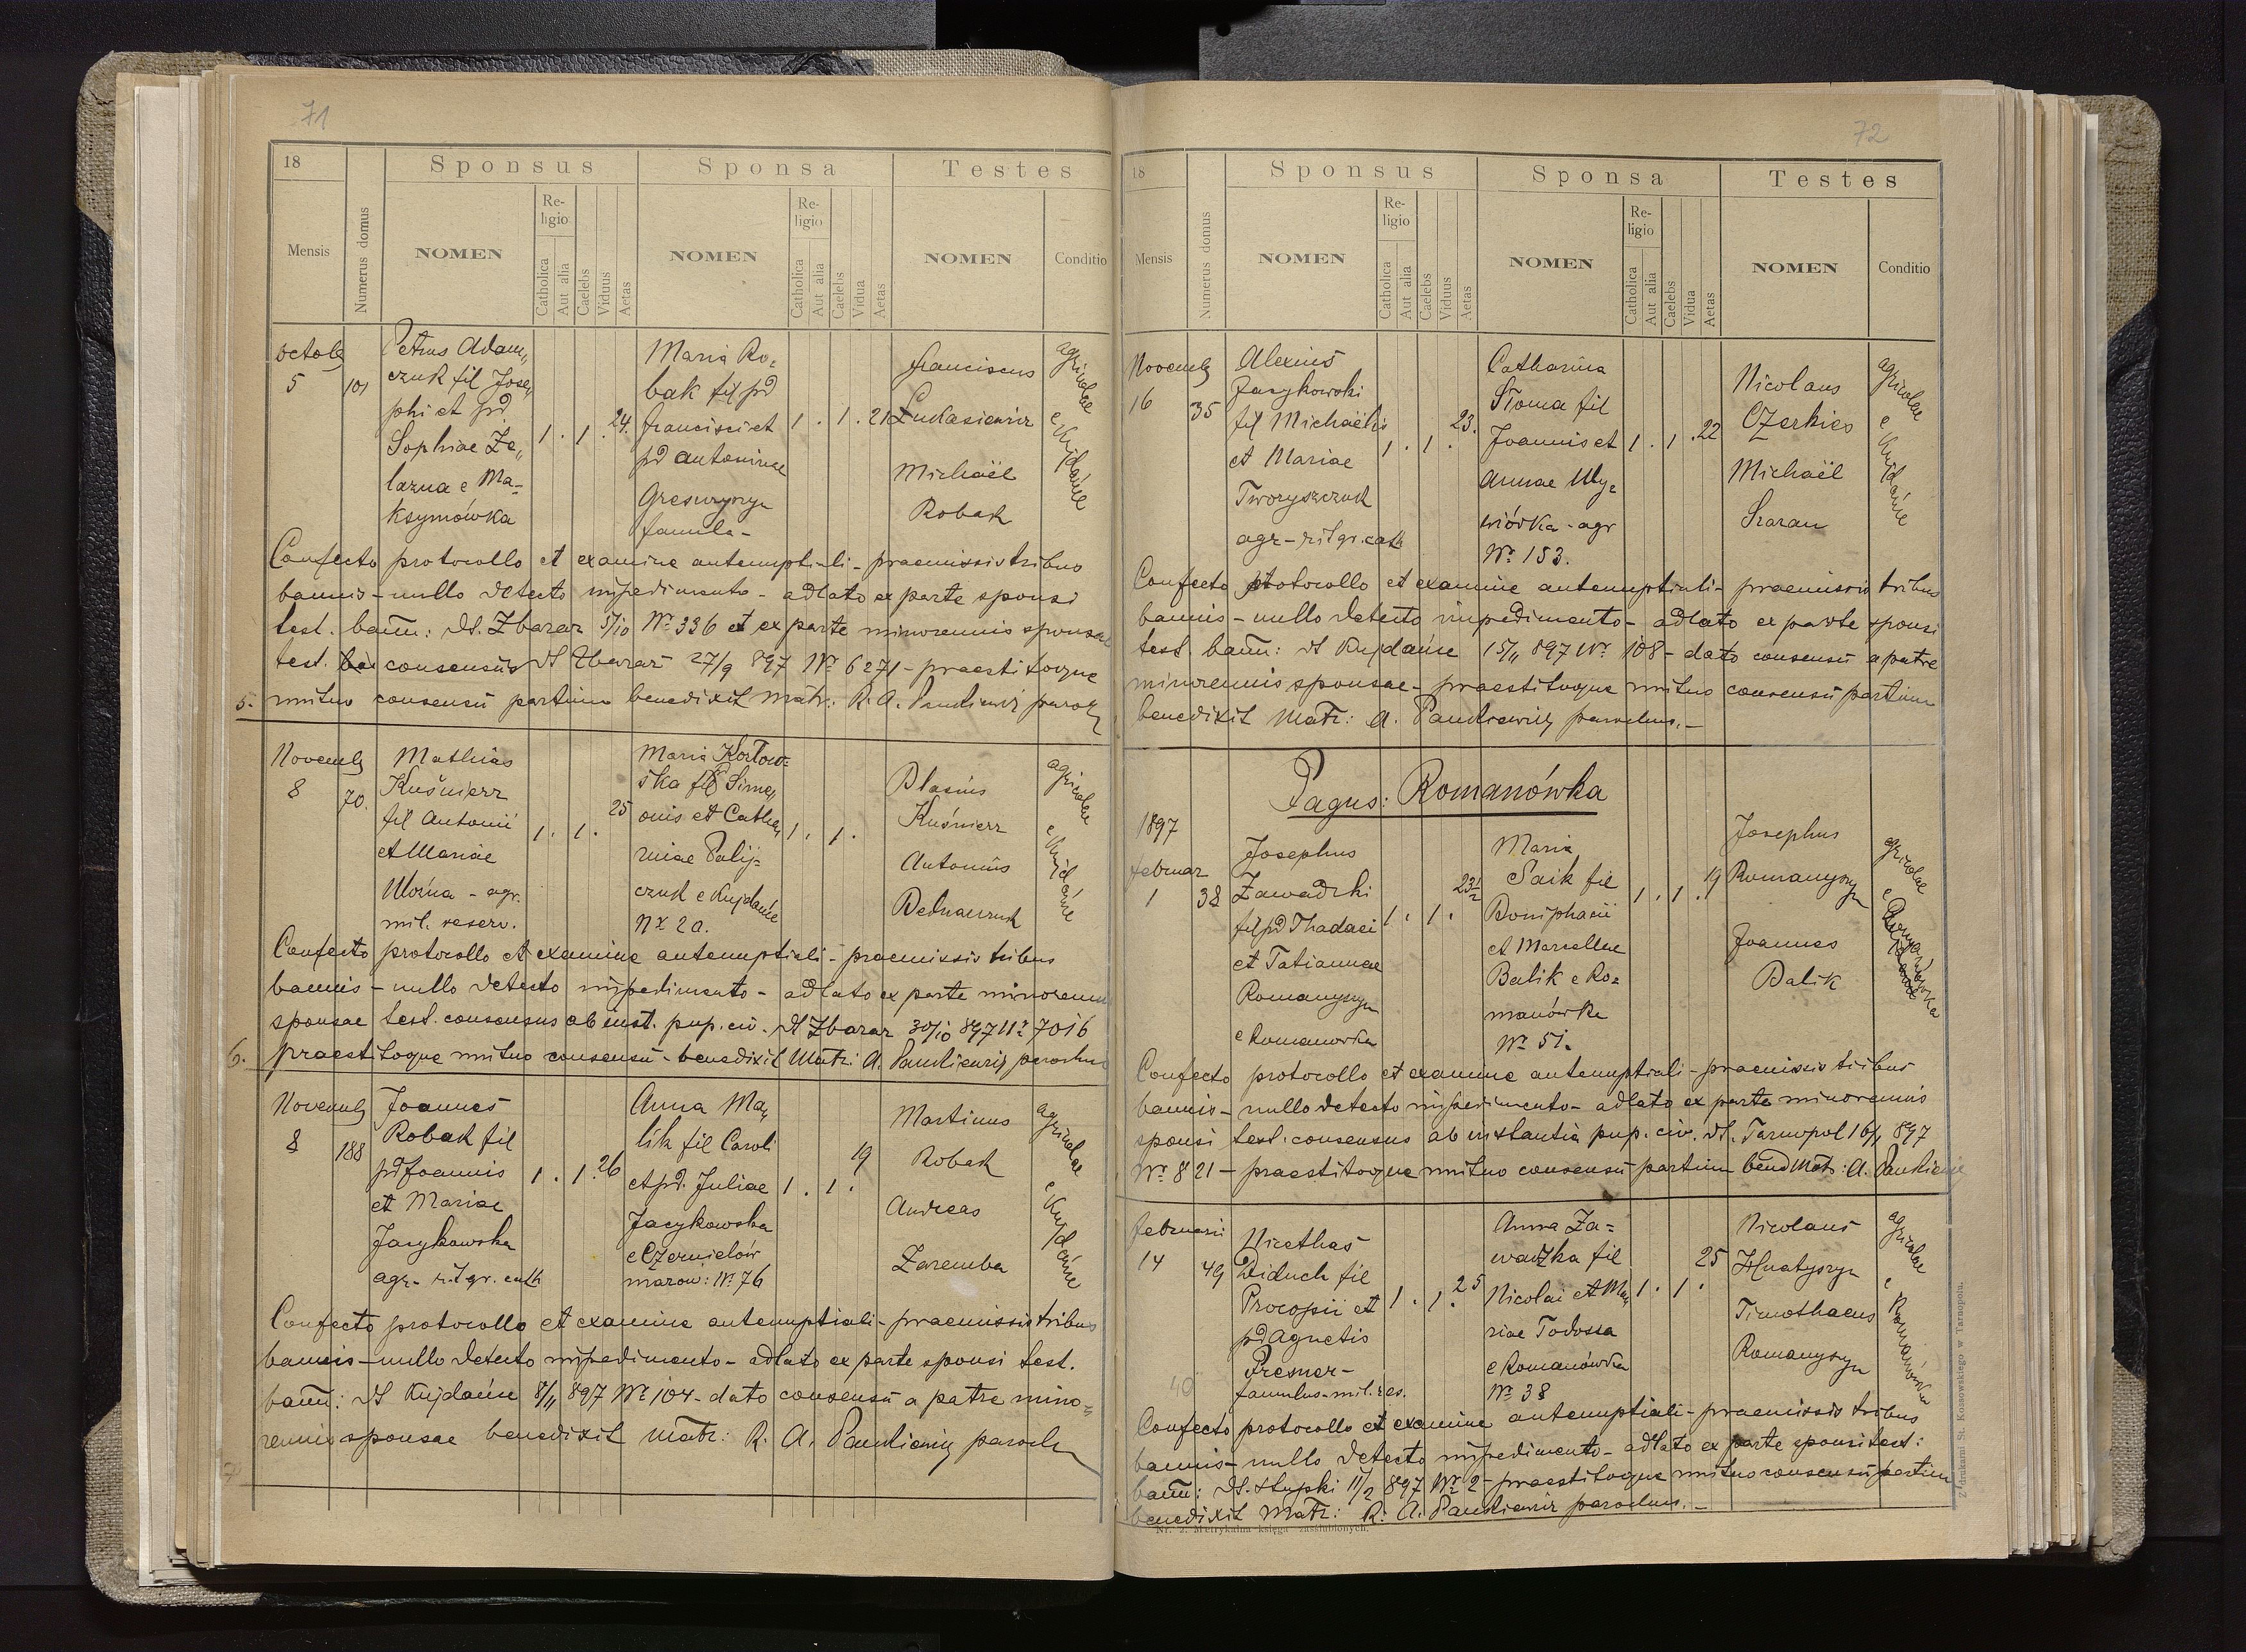 71
18
Sponsus
Sponsa
Testes
Mensis
Numerus domus
NOMEN
Re-
ligio
Catholica
Aut alia
Caelebs
Viduus
Aetas
NOMEN
Re-
ligio
Catholica
Aut alia
Caelebs
Vidua
Aetas
NOMEN
Conditio
octob
5
101
Petrus Adam„
czuk fil Jose„
phi et pd
Sophiae Że„
lazna e Ma-
ksymówka
1 . 1 . 24.
Maria Ro-
bak fil pd
Francisci et
pd Antoninae
famula-
1 . 1 . 21
Franciscus
Łukasiewicz
Michaël
Robak
agricolae e Kujdańce
Confecto protocollo et examine antenuptiali - praemissis tribus
bannis - nullo detecto impedimento - adlato ex parte sponsi
test. bann: dt. Zbaraż 5/10 Nr 336 et ex parte minorennis sponsae
test. consensus dt Zbaraż 27/9 897 Nr 6271 - praestitoque
5. mutuo consensu partium benedixit Matr: R. A. Pankiewicz paroch
Novemb
8
70.
Mathias
Kuśnierz
fil Antonii
et Mariae
Woźna - agr.
mil. reserv.
1 . 1 . 25
Maria Kozłow-
ska fil Sime„
onis et Catha„
rinae Palij-
czuk e Kujdańce
Nr 20.
1 . 1 .
Blasius
Kuśnierz
Antonius
Bednarczuk
agricolae e Kujdańce
Confecto protocollo et examine antenuptiali - praemissis tribus
bannis - nullo detecto impedimento - adlato ex parte minorennis
sponsae test. consensus ab inst. pup. civ. dt Zbaraz 30/10 897 Nr 7016
6. praestitoque mutuo consensu - benedixit Matr: A. Pankiewicz parochus
Novemb
8
188
Joannes
Robak fil
pd Joannis
et Mariae
Jacykowska
agr - rit gr. cath
1 . 1 . 26
Anna Ma„
lik fil Caroli
et pd. Juliae
Jacykowska
e Czernielów
mazow: Nr 76
1 . 1 . 19
Martinus
Robak
Andreas
Zaremba
agricolae e Kujdańce
Confecto protocollo et examine antenuptiali - praemissis tribus
bannis - nullo detecto impedimento - adlato ex parte sponsi test.
bann: dt Kujdańce 8/11 897 Nr 104 - dato consensu a patre mino„
rennis sponsae benedixit Matr: R. A. Pankiewicz paroch
7
72
18
Sponsus
Sponsa
Testes
Mensis
Numerus domus
NOMEN
Re-
ligio
Catholica
Aut alia
Caelebs
Viduus
Aetas
NOMEN
Re-
ligio
Catholica
Aut alia
Caelebs
Vidua
Aetas
NOMEN
Conditio
Novemb
16
35
Alexius
Jacykowski
fil Michaëlis
et Mariae
Tworyszczuk
agr - rit gr. cath
1 . 1 . 23.
Catharina
Słoma fil
Joannis et
Annae Wy-
wiórka - agr
Nr 153.
1 . 1 . 22
Nicolaus
Czerkies
Michaël
Szaran
agricolae e Kujdańce
Confecto protocollo et examine antenuptiali - praemissis tribus
bannis - nullo detecto impedimento - adlato ex parte sponsi
test. bann: dt Kujdańce 15/11 897 Nr 108 - dato consensu a patre
minorennis sponsae - praestitoque mutuo consensu partium
benedixit Matr: A. Pankiewicz parochus. -
Pagus: Romanówka
1897
februar
1
38
Josephus
Zawadzki
fil pd Thadaei
et Tatiannae
Romanyszyn
e Romanowka
1 . 1 . 23 1/2
Maria
Saik fil
Boniphacii
et Marcellae
Balik e Ro-
manówka
Nr 51.
1 . 1 . 19
Josephus
Romanyszyn
Joannes
Balik
agricolae e Romanówka
Confecto protocollo et examine antenuptiali - praemissis tribus
bannis - nullo detecto impedimento - adlato ex parte minorennis
sponsi test. consensus ab instantia pup. civ. dt. Tarnopol 16/1 897
Nr 821 - praestitoque mutuo consensu partium bened Matr: A. Pankiewicz
februarii
14
49
Nicethas
Diduch fil
Procopii et
pd Agnetis
Presner -
famulus - mil. res.
40
1 . 1 . 25
Anna Za-
wadzka fil
Nicolai et Ma„
riae Todossa
e Romanówka
Nr 38
1 . 1 . 25
Nicolaus
Hnatyszyn
Timothaeus
Romanyszyn
agricolae e Romanówka
Confecto protocollo et examine antenuptiali - praemissis tribus
bannis - nullo detecto impedimento - adlato ex parte sponsi test:
bann: dt. Stupki 11/2 897 Nr 2 - praestitoque mutuo consensu partium
benedixit Matr: R. A. Pankiewicz parochus. -
Nr. 2. Metrykalna księga zaślubionych.
Z drukarni St. Kossowskiego w Tarnopolu.